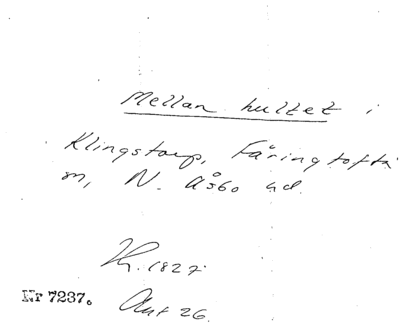 Mellan hultet i
Klingstorp, Färingtofta
m, N. Åsbo hd.
H. 1827
Nr 7237. Akt 26.